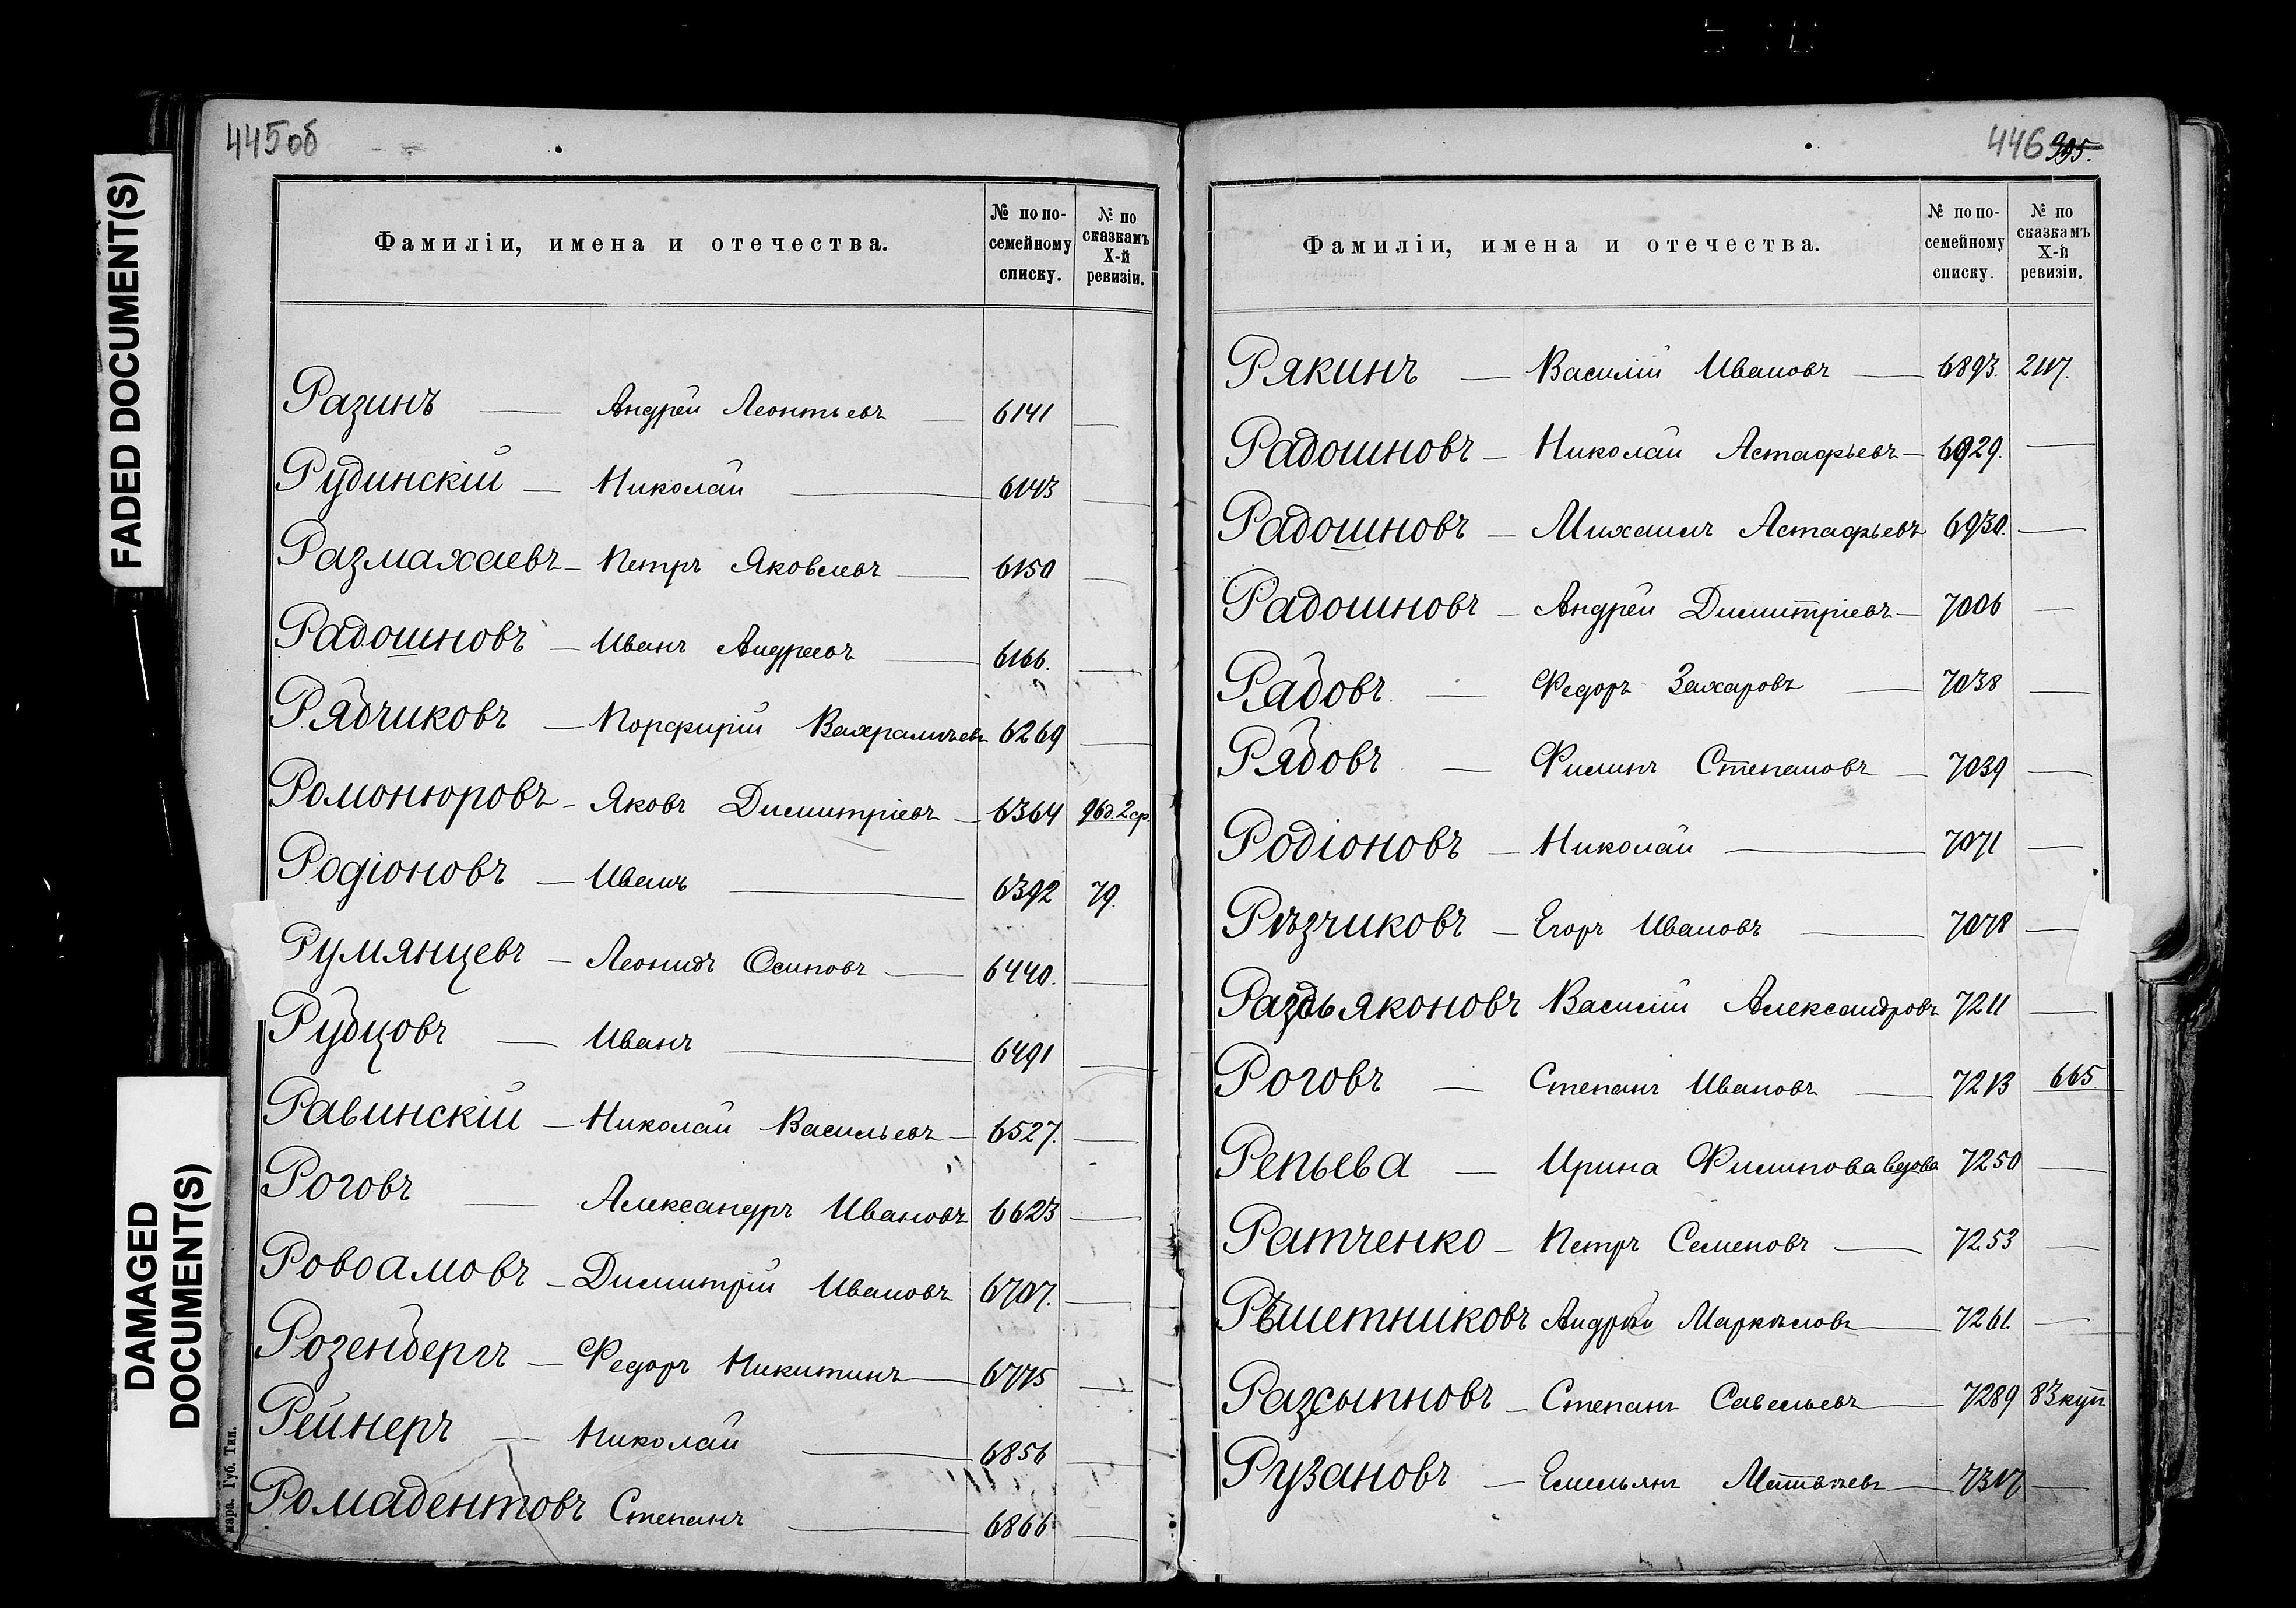 FADED DOCUMENT(S)
DAMAGED DOCUMENT(S)
445об
Фамиліи, имена и отечества. № по посемейному списку. № по сказкамъ X-й ревизіи.
Разинъ — Андрей Леонтьевъ — 6141 —
Рудинскій — Николай — 6143 —
Размахаевъ — Петръ Яковлевъ — 6150 —
Радошновъ — Иванъ Андреевъ — 6166. —
Рядчиковъ — Порфирій Вахрамѣевъ 6269 —
Ромонюровъ — Яковъ Димитріевъ — 6364 96д.2ср.
Родіоновъ — Иванъ — 6392 79.
Румянцевъ — Леонидъ Осиповъ — 6440. —
Рубцовъ — Иванъ — 6491 —
Равинскій — Николай Васильевъ — 6527. —
Роговъ — Александръ Ивановъ 6623 —
Ровоамовъ — Димитрій Ивановъ 6707. —
Розенбергъ — Федоръ Никитинъ — 6775 —
Рейнеръ — Николай — 6856 —
Ромадентовъ Степанъ — 6866 —
мара. Губ. Тип.
446 395.
Фамиліи, имена и отечества. № по посемейному списку. № по сказкамъ X-й ревизіи.
Рякинъ — Василій Ивановъ — 6893. 2117.
Радошновъ — Николай Астафьевъ — 6929. —
Радошновъ — Михаилъ Астафьевъ 6930. —
Радошновъ — Андрей Димитріевъ — 7006 —
Рядовъ — Федоръ Захаровъ — 7038 —
Рядовъ — Филипъ Степановъ — 7039 —
Родіоновъ — Николай — 7071 —
Рѣзчиковъ — Егоръ Ивановъ — 7078 —
Раздьяконовъ Василій Александровъ 7211 —
Роговъ — Степанъ Ивановъ — 7213 665.
Репьева — Ирина Филипова вдова 7250 —
Ратченко — Петръ Семеновъ — 7253 —
Рѣшетниковъ Андрей Маркѣловъ — 7261. —
Разсыпновъ — Степанъ Савельевъ — 7289 83 куп
Рузановъ — Емельянъ Матвѣевъ — 7317 —